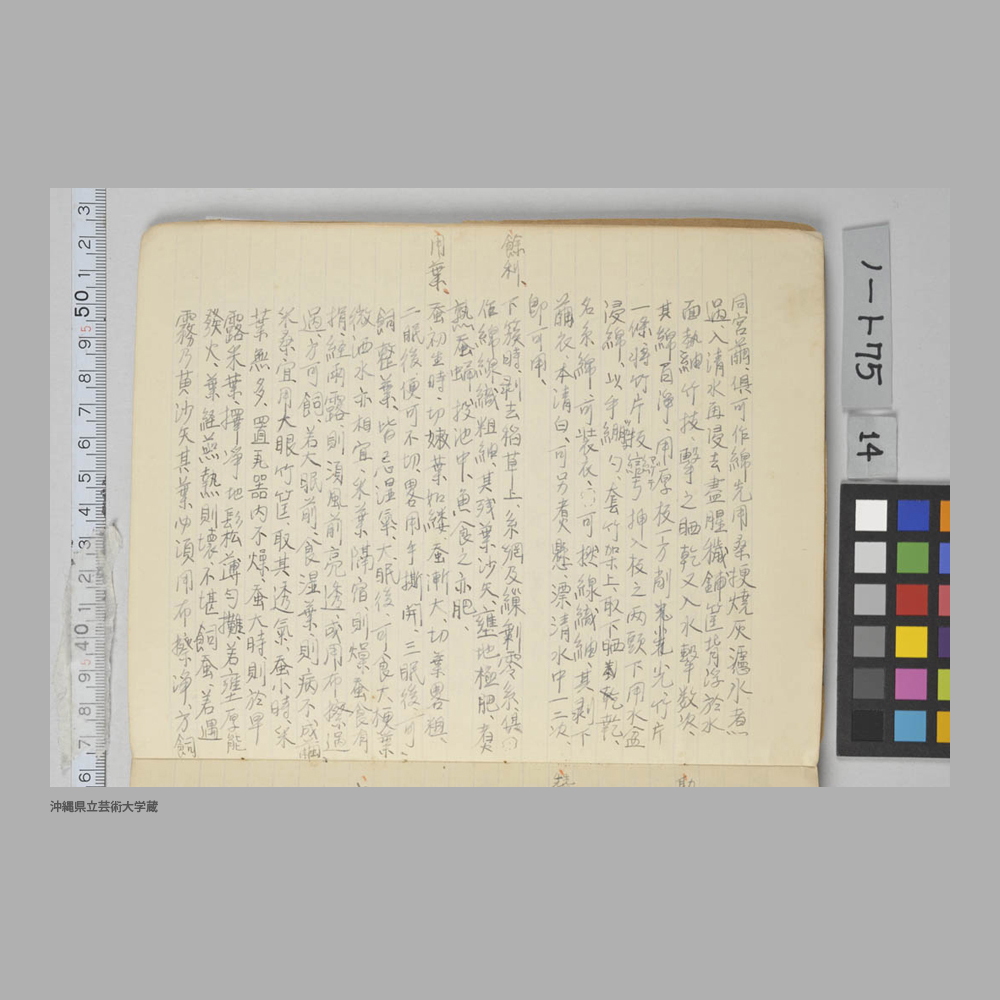 同宮繭、俱可作綿先用桑梗燒灰濾水煮
過、入清水再浸去盡腥穢鋪筐背浮於水
面熱紬竹技、擊之晒乾又入水擊数次、
其綿自淨、用厚板一方削光竹片
一條將竹片板彎挿入板之两頭下用水盆
浸綿、以手綳勻、套竹架上、取下晒乾
名糸綿、可装衣、亦可撚線織紬、其剥下
繭衣、本清白、可另煮懸、漂清水中一二次、
即可用、
餘利、
下簇時、剥去稻草上、糸網及繅剰零糸、俱可
作綿綖織粗紬、其残葉沙矢、壅地極肥、煮
熟蚕蛹、投池中、魚食之亦肥、
用葉、
蚕初生時、切嫩葉如縷、蚕漸大、切葉畧粗、
二眠後便可不切、畧用手撕開、三眠後、可、
飼整葉、皆忌湿氣、大眠後、可食大梗葉
微洒水、亦相宜、采葉、隔宿則燥、蚕食有
損經雨露、則須風前亮透、或用布擦過
過、方可飼、若大眠前、食湿葉、則病不成繭、
采桑、宜用大眼竹筐、取其透氣、蚕小時采
葉無多、置瓦器内不燥、蚕大時則於早
露采葉、擇淨地鬆松薄匀攤、若壅厚能
發火、葉經蒸熱則壊不堪飼蚕、若遇
霧乃黄沙矢其葉必須用布擦淨、方飼
ノート75
14
沖縄県立芸術大学蔵